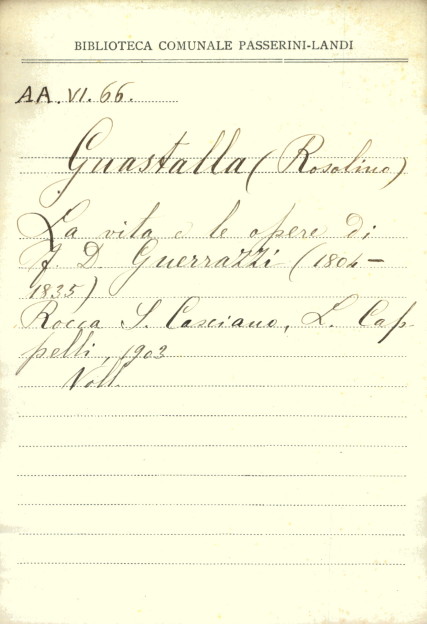 BIBLIOTECA COMUNALE PASSERINI-LANDI
AA. VI. 66.
Guastalla (Rosolino)
La vita e le opere di
F. D. Guerrazzi (1804-
1835)
Rocca S. Casciano, L. Cap-
pelli, 1903
Voll.